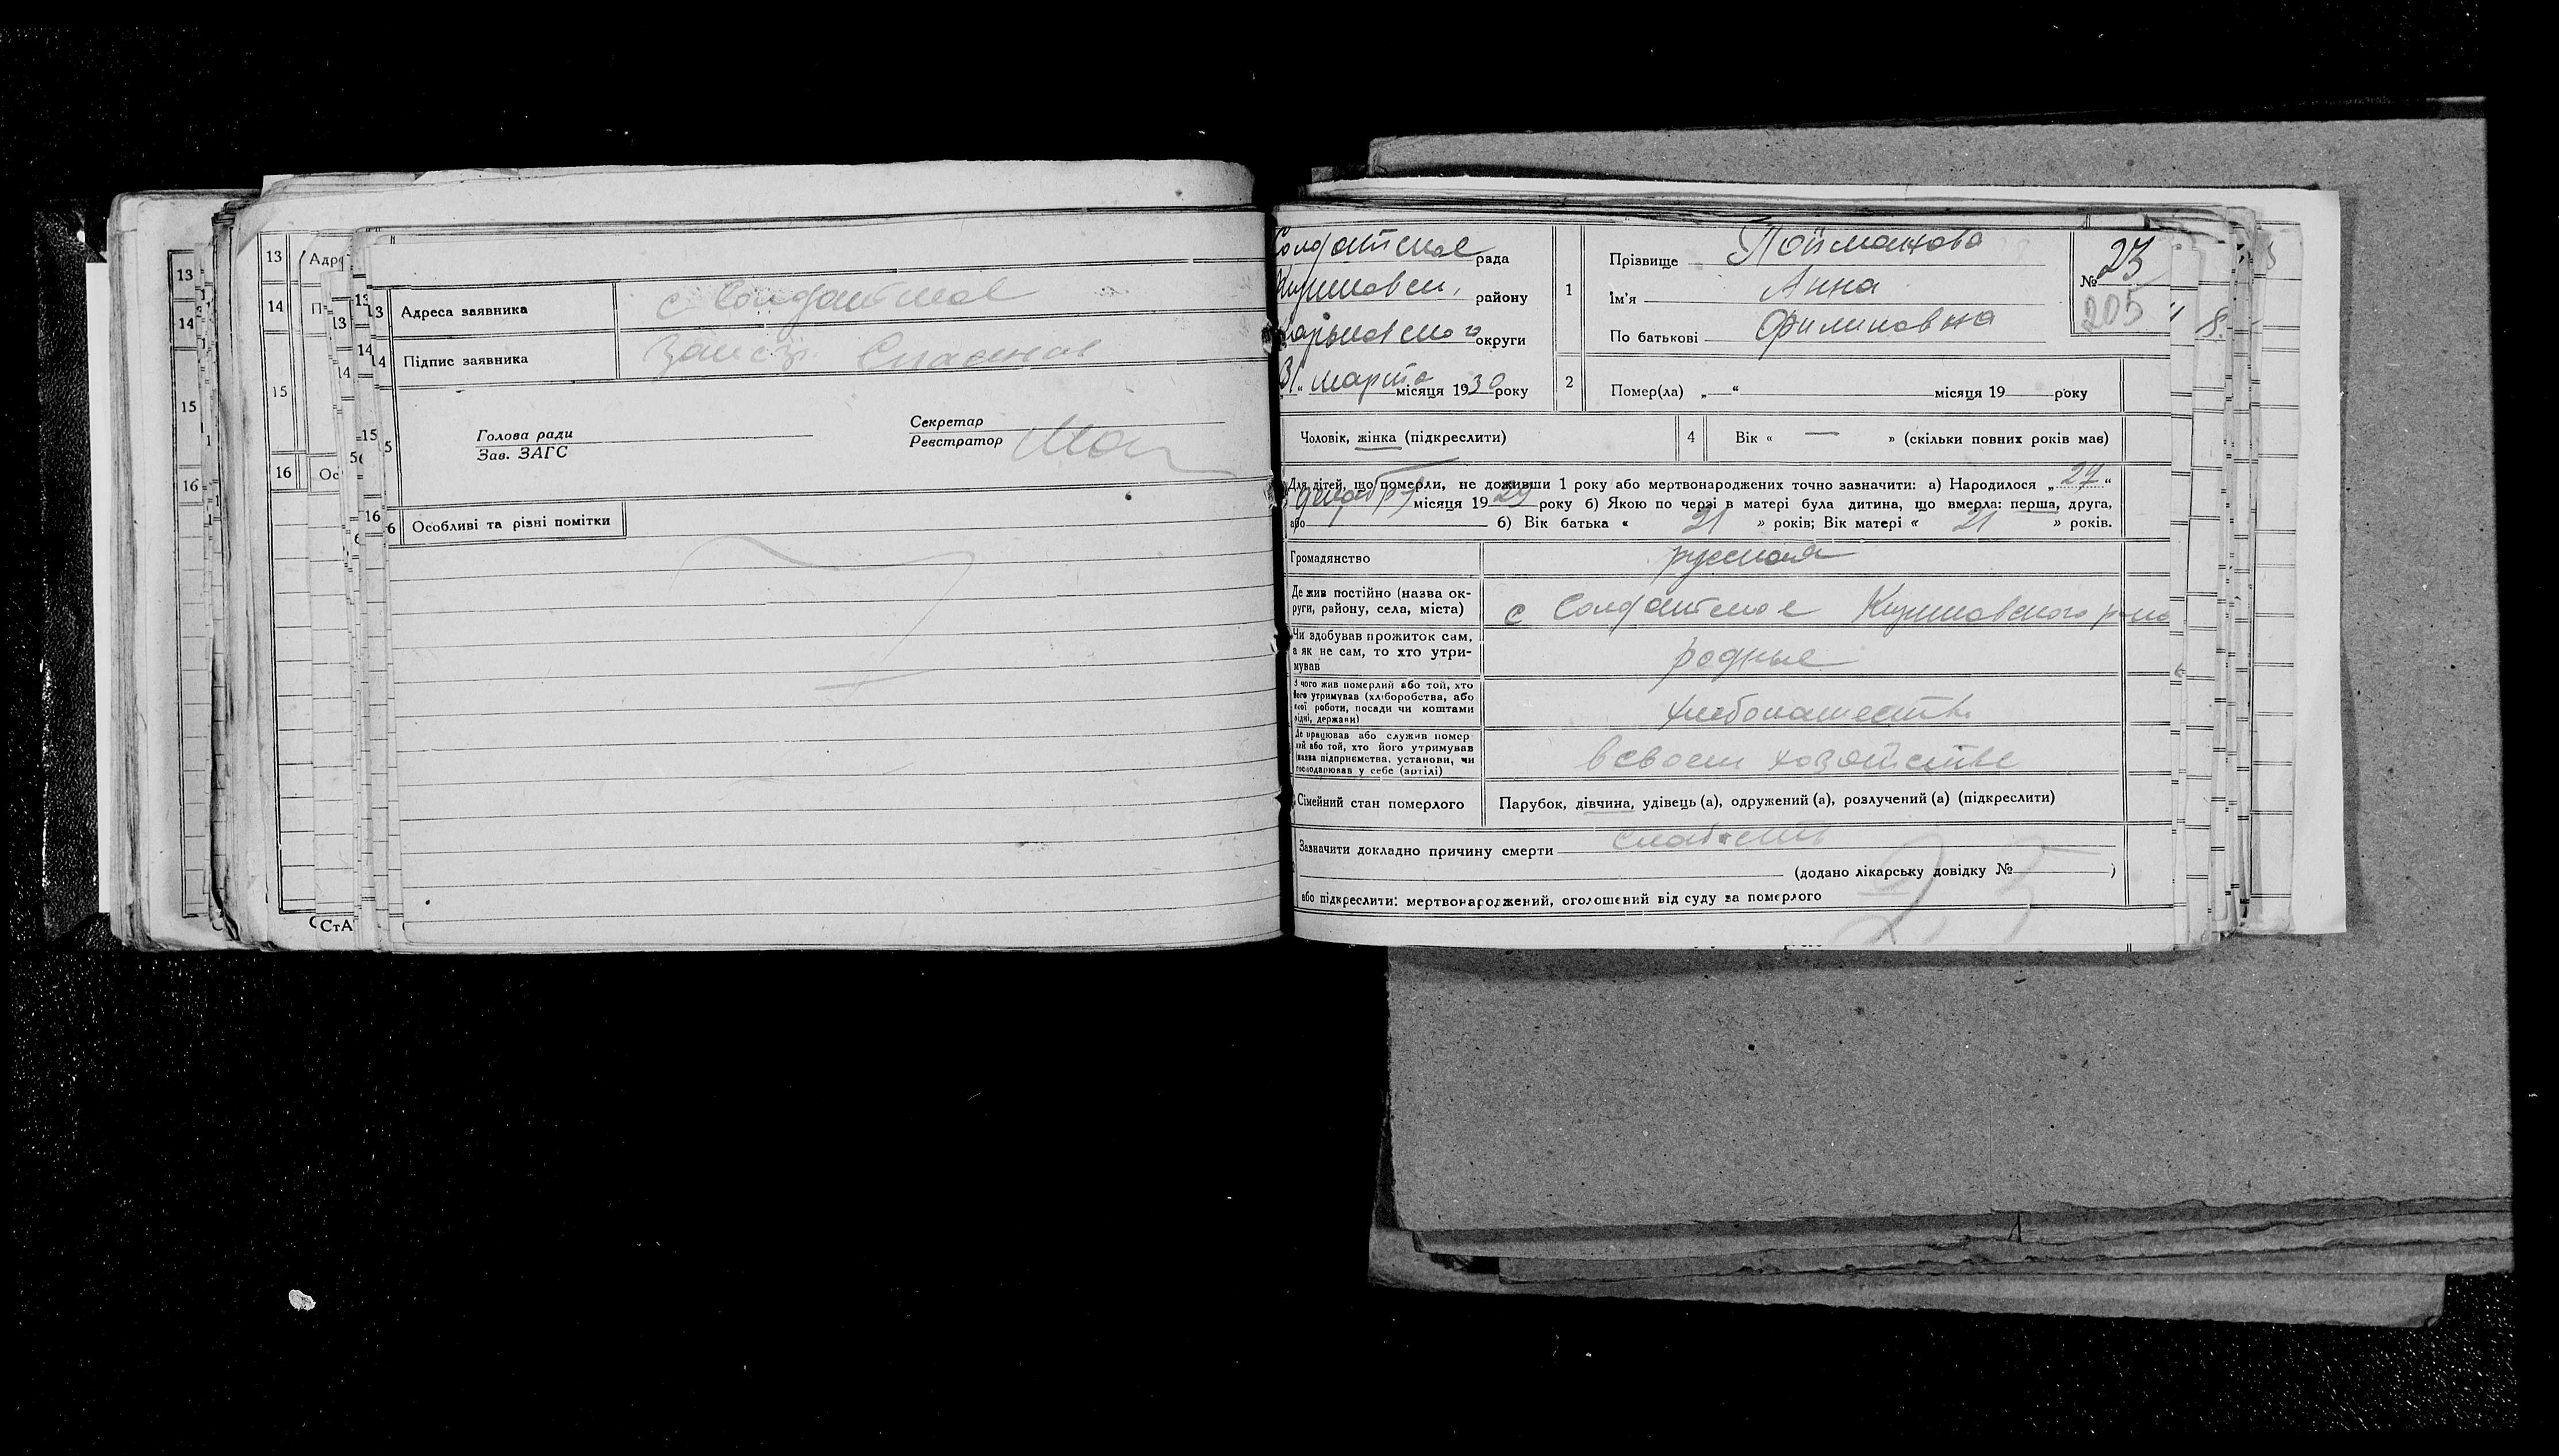 13
14
15
16
13
Адре
14
15
16
Ос
СтА
13
Адреса заявника
с Солдатское
14
Підпис заявника
Голова ради
Зав. ЗАГС
Секретар
Реєстратор
16
Особливі та різні помітки
Солдатское рада
району
округи
31 " марта місяця 1930 року
1
Прізвище
Ім'я Анна
По батькові Филиповна
№ 23
205
8
2
Помер(ла) „—“ місяця 19 року
Чоловік, жінка (підкреслити)
4
Вік « — » (скільки повних років має)
Для дітей, що померли, не доживши 1 року або мертвонароджених точно зазначити: а) Народилося „ 27 “
декабря місяця 1929 року б) Якою по черзі в матері була дитина, що вмерла: перша, друга,
або б) Вік батька « 21 » років; Вік матері « 21 » років.
Громадянство
русская
Де жив постійно (назва ок-
руги, району, села, міста)
с Солдатское
Чи здобував прожиток сам,
а як не сам, то хто утри-
мував
родные
З чого жив померлий або той, хто
його утримував (хліборобства, або
якої роботи, посади чи коштами
рідні, держави)
хлебопашеств
Де працював або служив помер
лий або той, хто його утримував
(назва підприємства, установи, чи
господарював у себе (артілі)
в своем хозяйстве
Сімейний стан померлого
Парубок, дівчина, удівець (а), одружений (а), розлучений (а) (підкреслити)
Зазначити докладно причину смерти слабость
(додано лікарську довідку № )
або підкреслити: мертвонароджений, оголошений від суду за померлого